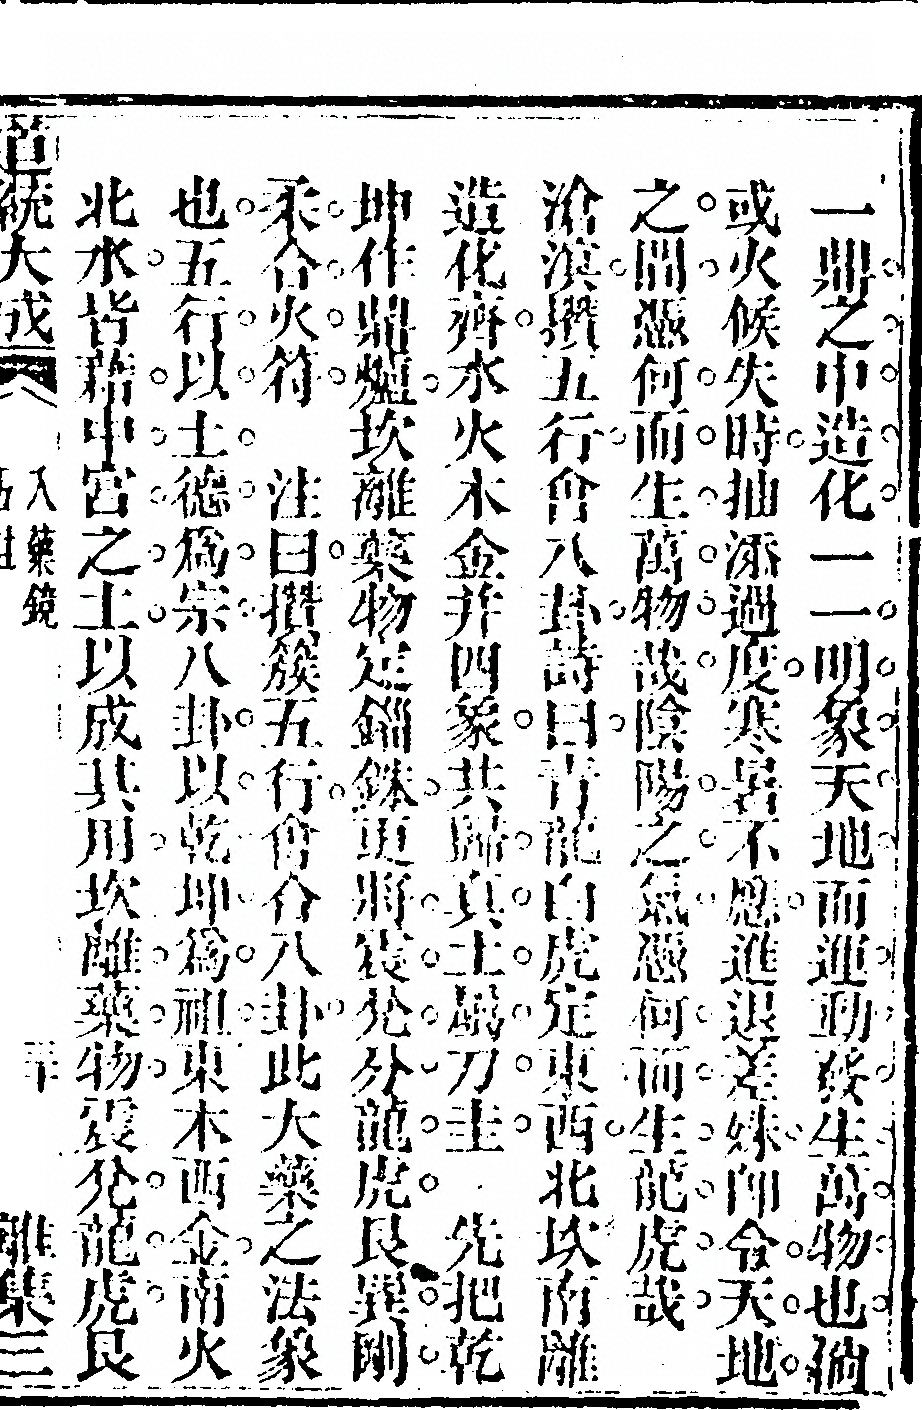 一鼎之中造化一一明象天地而運動發生萬物也倘
或火候失時抽添過度寒暑不應進退差殊卽令天地
之間憑何而生萬物哉陰陽之氣憑何而生龍虎哉
滄溟攢五行會八卦詩曰青龍白虎定東西北坎南離
造化齊水火木金并四象共歸真土屬刀圭 先把乾
坤作鼎爐坎離藥物定錙銖更將震兊分龍虎艮巽剛
柔合火符 注曰攢簇五行會合八卦此大藥之法象
也五行以土德爲宗八卦以乾坤爲祖東木西金南火
北水皆藉中宮之土以成其用坎離藥物震兊龍虎艮
道統大成 入藥鏡 三十 離集三